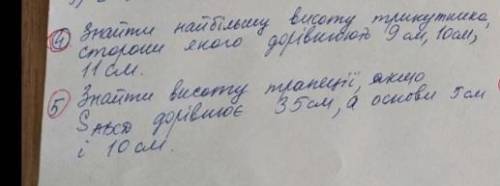 ④ Знайти найбільшу висоту трикутника,
сторони якого дорівнюють 9 см, 10 см,
11 см.
⑤ Знайти висоту трапеції, якщо
SABCD дорівнює 35 см, а основи 5 см
і 10 см.